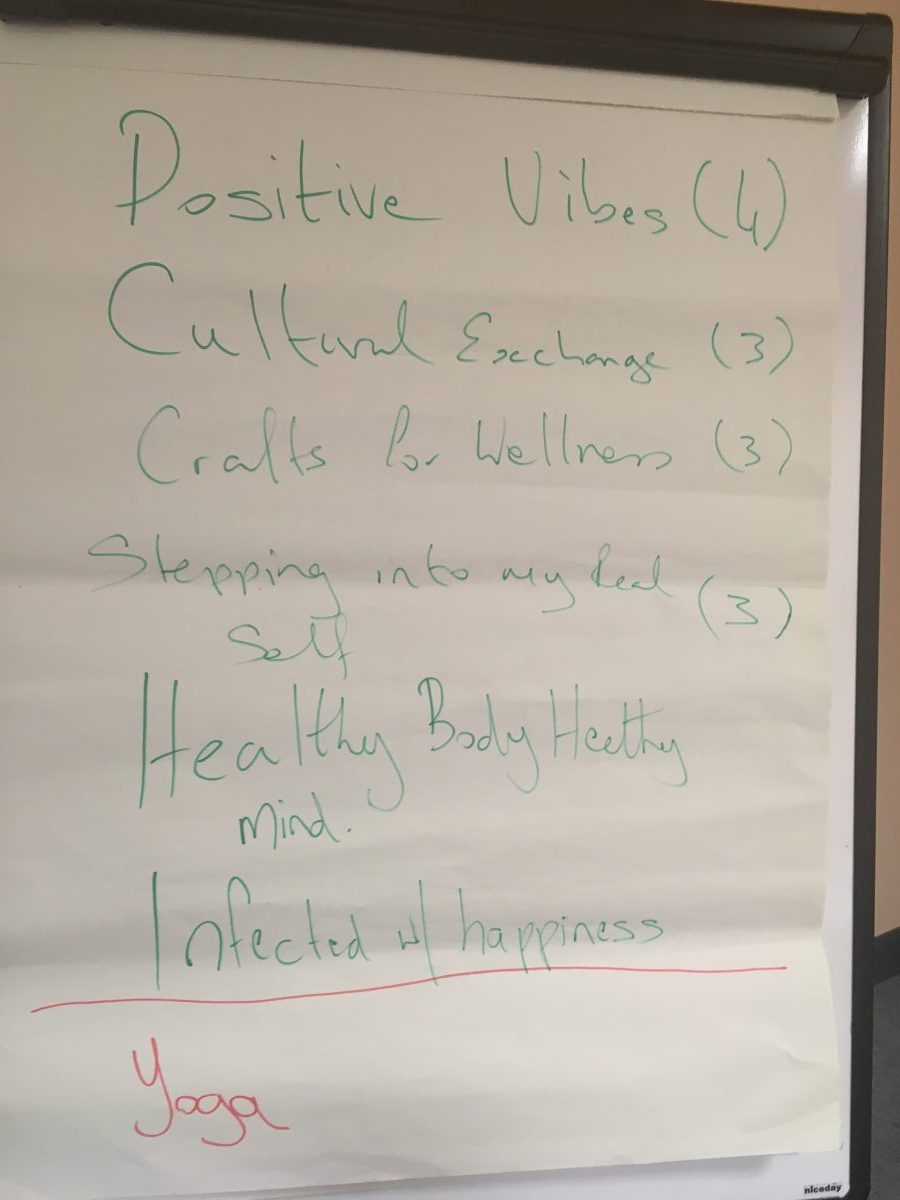 Positive Vibes (4)
Cultural Exchange (3)
Crafts for Wellness (3)
Stepping into my Real (3)
Self
Healthy Body Heethy
mind.
Infected w/ happiness
Yoga
niceday